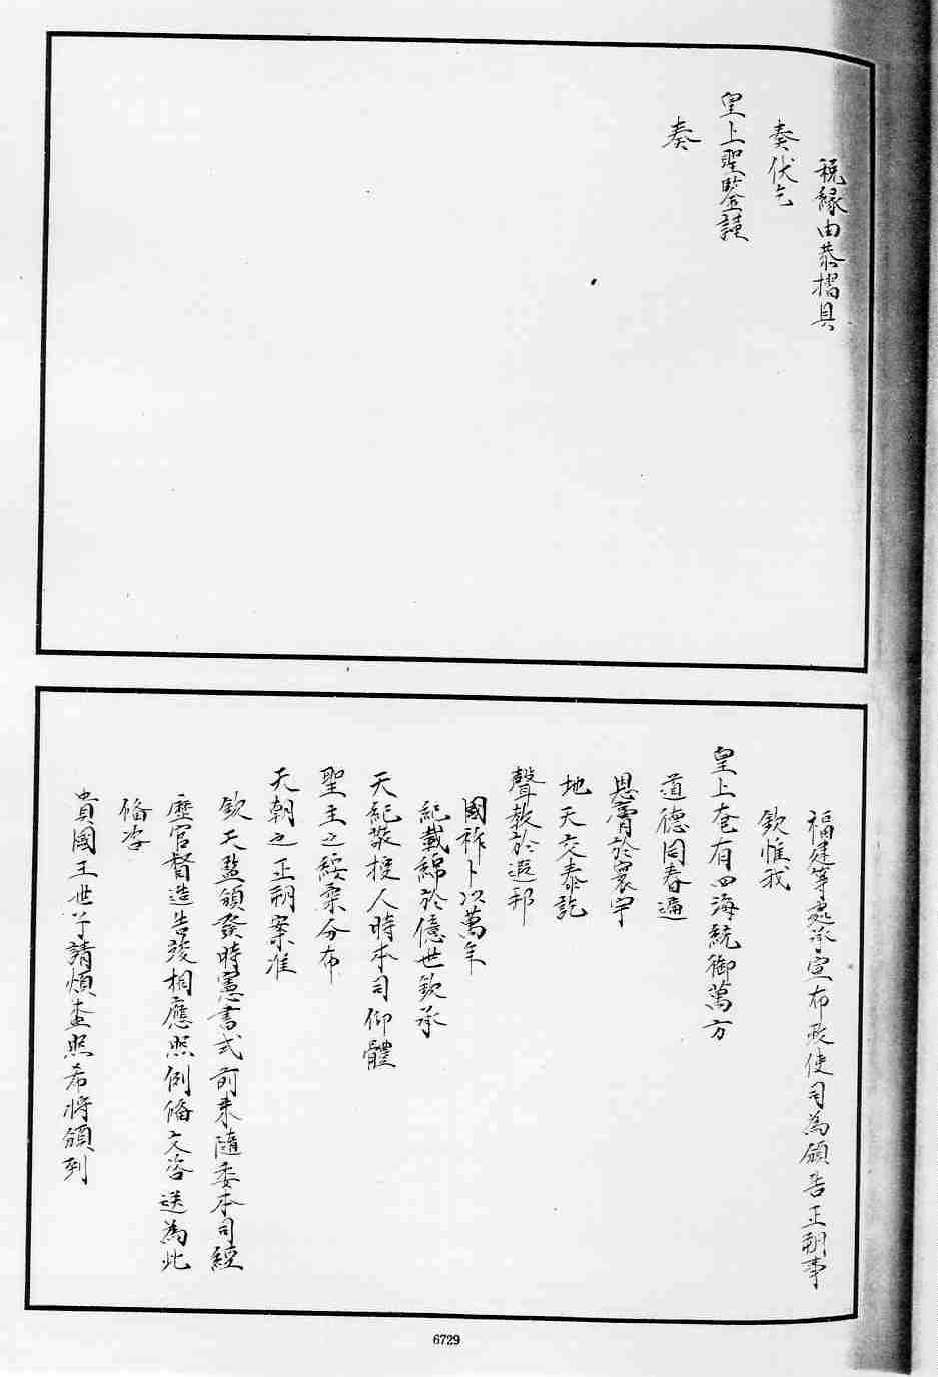 稅緣由恭摺具
奏伏乞
皇上聖鑒謹
奏
福建等處承宣布政使司為頒告正朔事
欽惟我
皇上奄有四海統御萬方
道德同春遍
恩膏於寰宇
地天交泰訖
聲教於遐邦
國祚卜以萬年
紀載綿於億世欽承
天紀敬授人時本司仰體
聖主之綏柔分布
天朝之正朔案准
欽天監頒發時憲書式前來隨委本司經
歷官督造告竣相應照例備文咨送為此
備咨
貴國王世子請煩查照希將頒到
6729